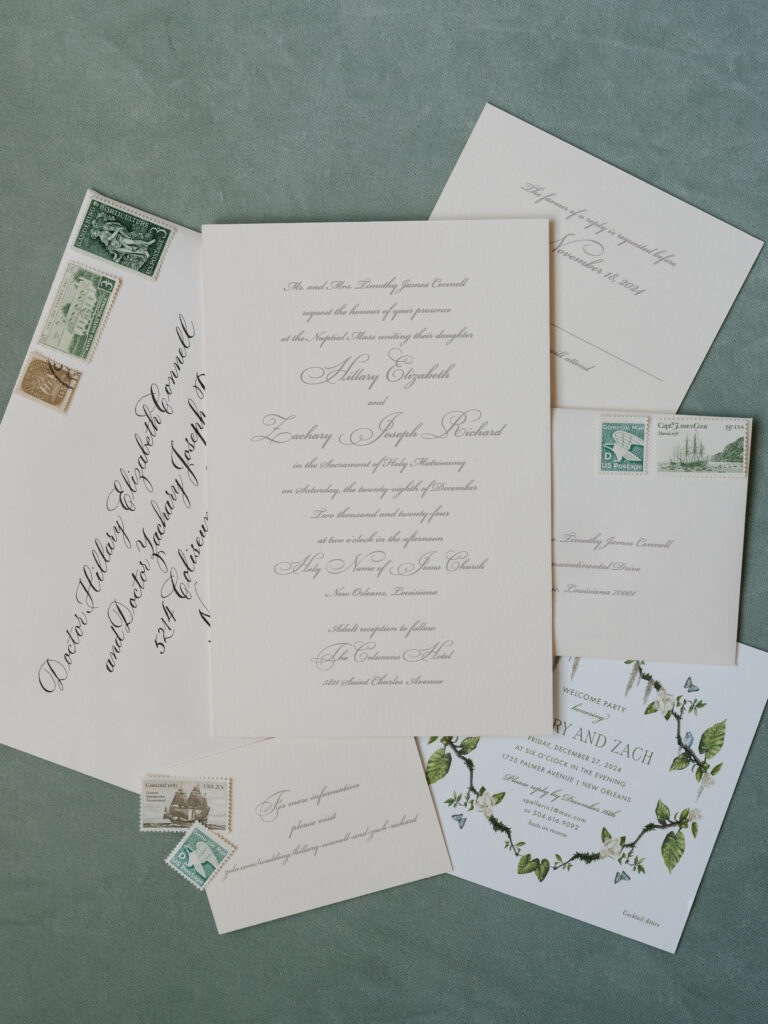 GARDENING HORTICULTURE
3 CENTS
3
Doctor Hillary Elizabeth Connell
and Doctor Zachary Joseph
5214 Coliseum
Mr. and Mrs. Timothy James Connell
request the honour of your presence
at the Nuptial Mass uniting their daughter
Hillary Elizabeth
and
Zachary Joseph Richard
in the Sacrament of Holy Matrimony
on Saturday, the twenty-eighth of December
Two thousand and twenty-four
at two o'clock in the afternoon
Holy Name of Jesus Church
New Orleans, Louisiana
Adult reception to follow
The Columns Hotel
3811 Saint Charles Avenue
The favour of a reply is requested before
November 18, 2024
will attend
Domestic Mail
D
US Postage
Capt. James Cook
Hawaii 1778
13c USA
s. Timothy James Connell
nscontinental Drive
e, Louisiana 70001
Concord 1683
USA 20c
German
Immigration
Tricentennial
Domestic Mail
D
US Postage
For more information
please visit
zola.com/wedding/hillary-connell-and-zach-richard
WELCOME PARTY
honoring
RY AND ZACH
FRIDAY, DECEMBER 27, 2024
AT SIX O'CLOCK IN THE EVENING
1735 PALMER AVENUE | NEW ORLEANS
Please reply by December 14th
spellerin1@mac.com
or 504.616.9092
hosts on reverse
Cocktail Attire